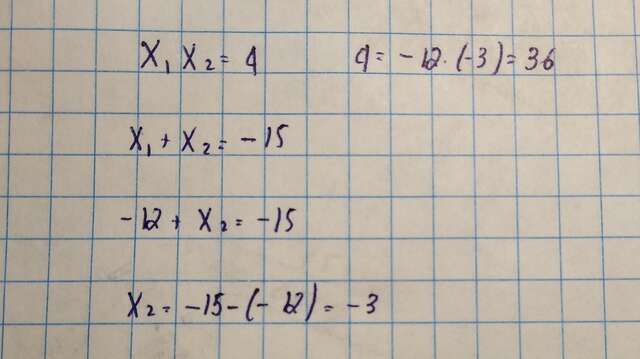 x₁ x₂ = q q = -12 · (-3) = 36
x₁ + x₂ = -15
-12 + x₂ = -15
x₂ = -15 - (-12) = -3